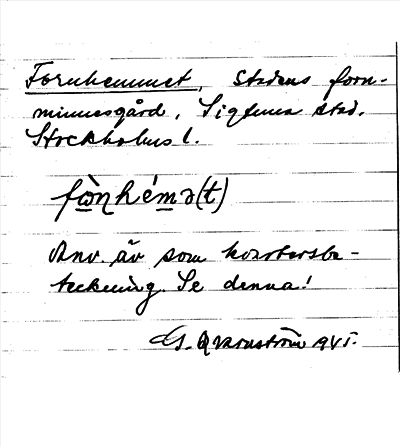 Fornhemmet, stadens forn-
minnesgård, Sigtuna stad.
Stockholms l.
fὼnhémə(t)
Anv. äv. som kvartersbe-
teckning. Se denna!
G. Qvarnström 1951.